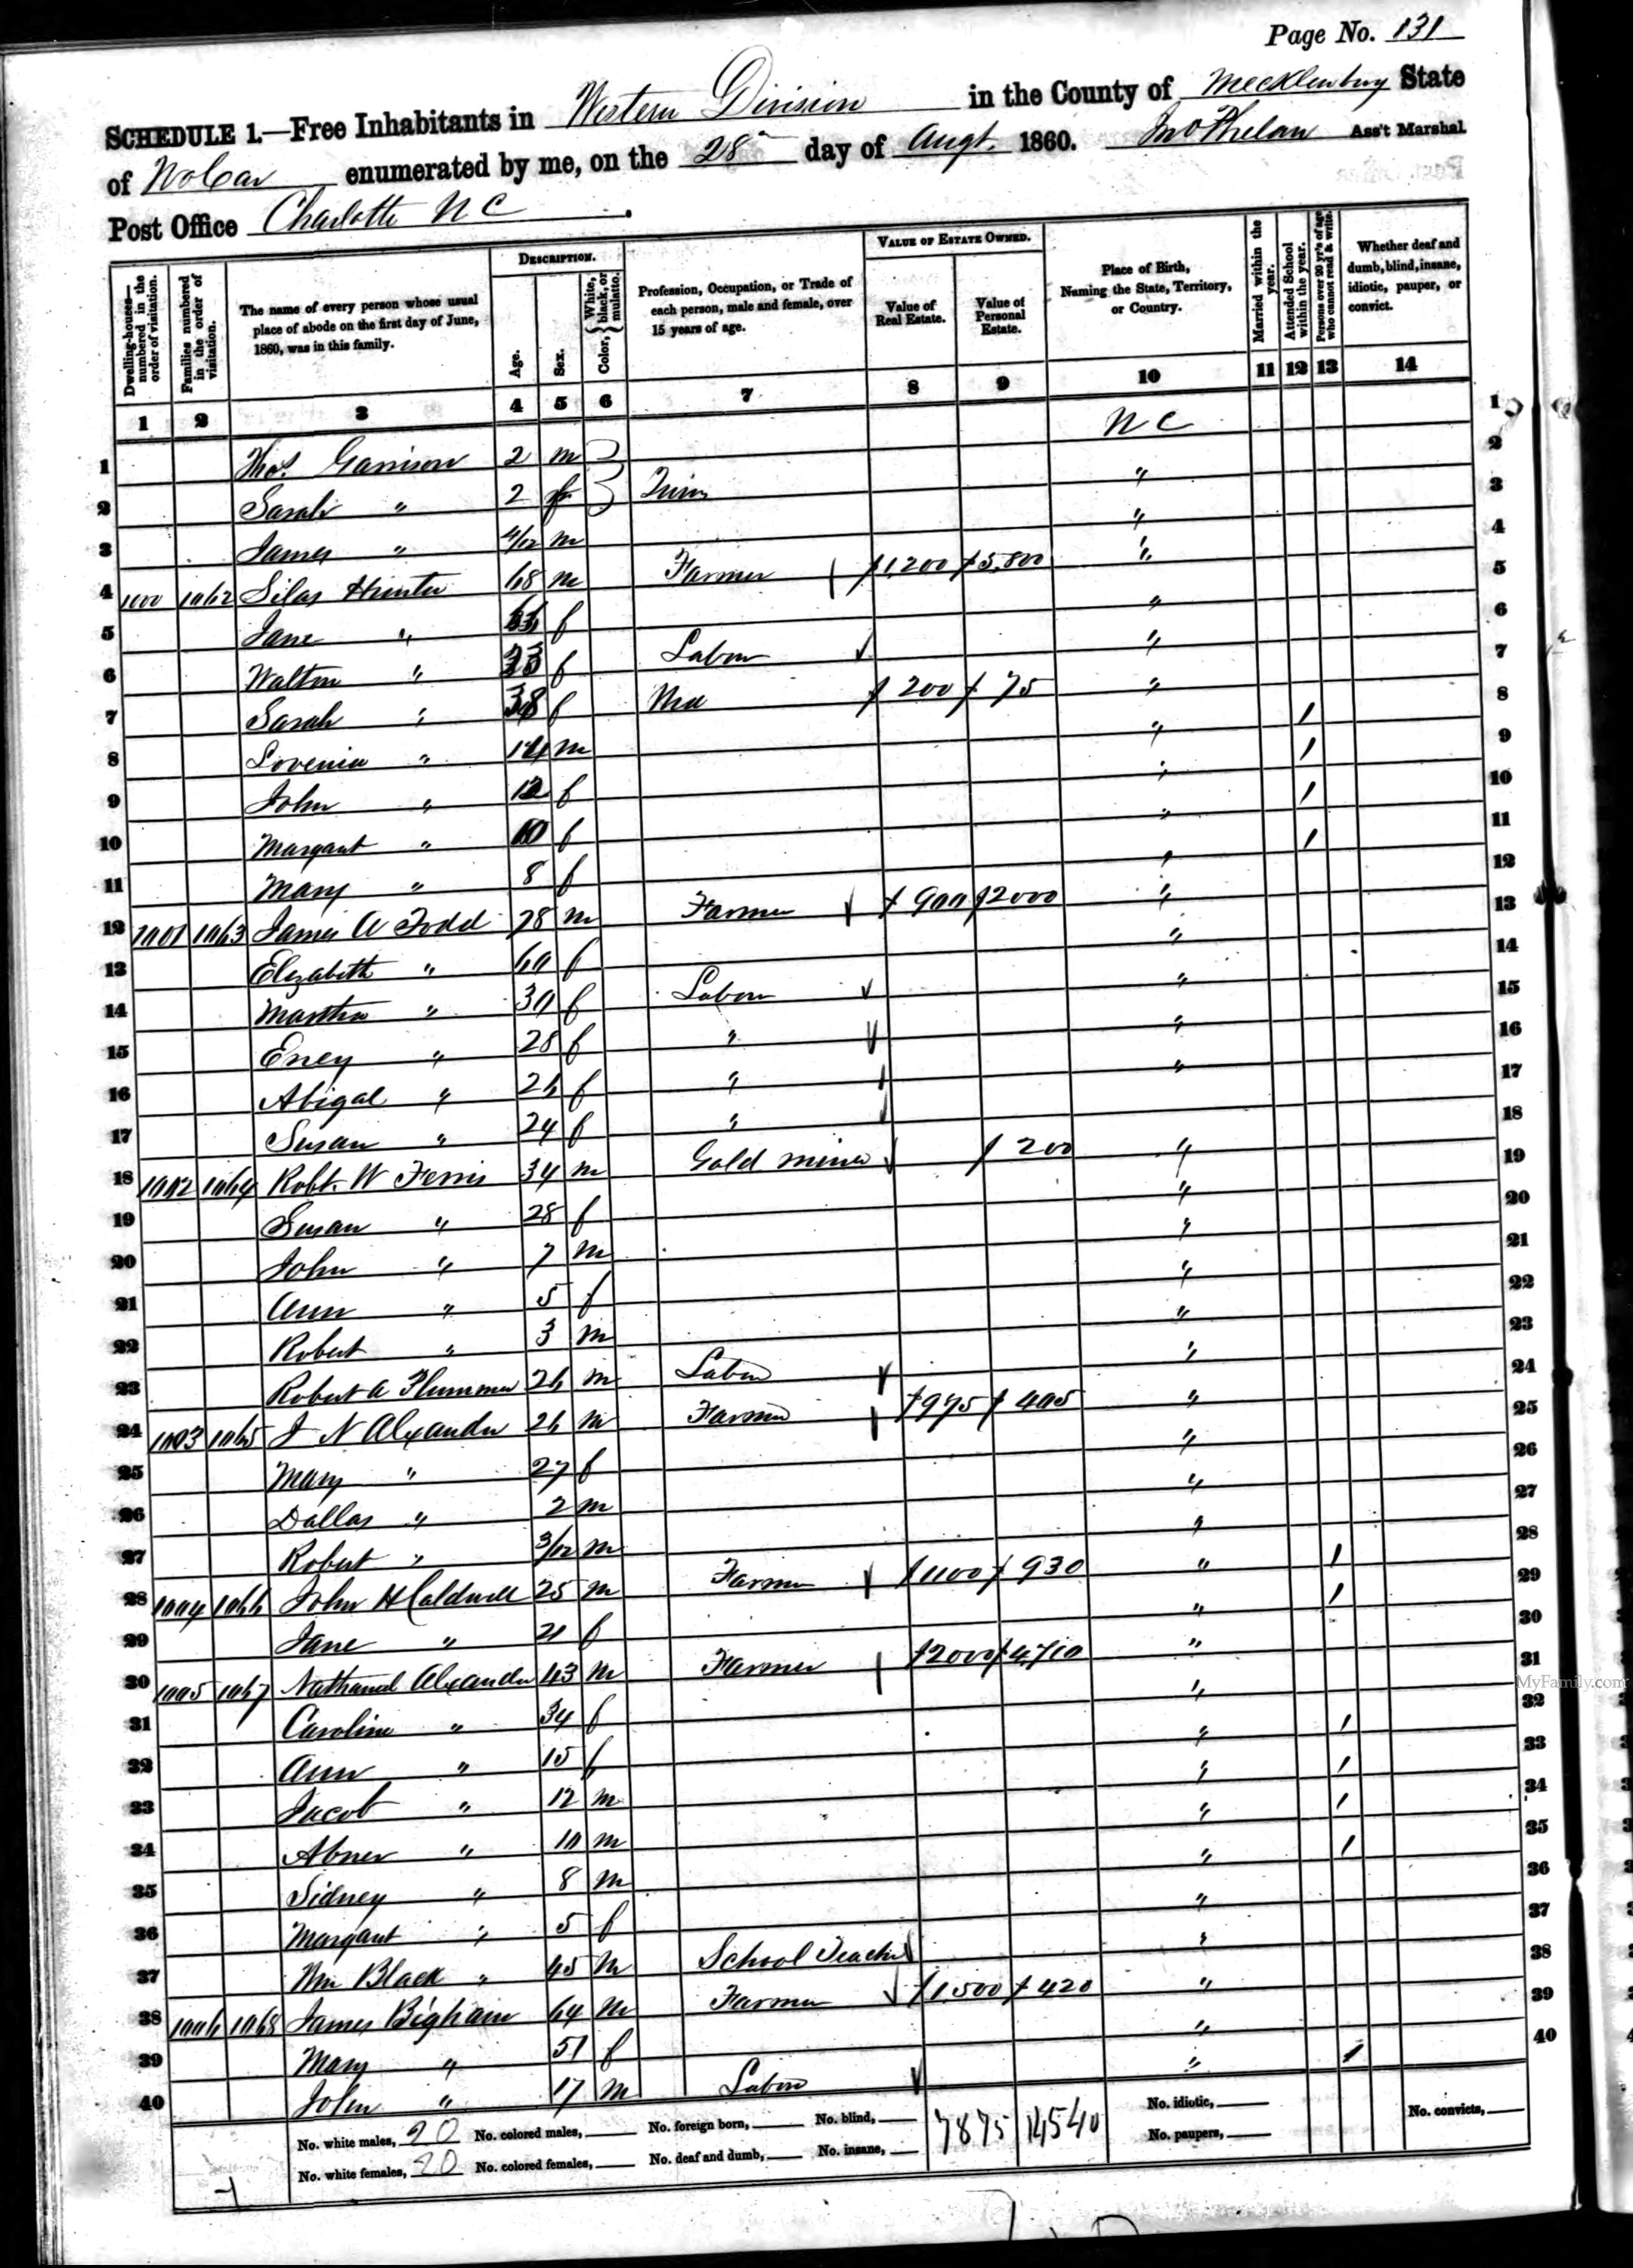 Page No. 131
SCHEDULE 1.—Free Inhabitants in Western Division in the County of Mecklenburg State
of No Car enumerated by me, on the 28" day of Augt. 1860. Jno Phelan Ass't Marshal.
Post Office Charlotte N C.
Dwelling-houses—numbered in the order of visitation. Families numbered in the order of visitation. The name of every person whose usual place of abode on the first day of June, 1860, was in this family. DESCRIPTION. Age. Sex. Color, { White, black, or mulatto. Profession, Occupation, or Trade of each person, male and female, over 15 years of age. VALUE OF ESTATE OWNED. Value of Real Estate. Value of Personal Estate. Place of Birth, Naming the State, Territory, or Country. Married within the year. Attended School within the year. Persons over 20 yr's of age who cannot read & write. Whether deaf and dumb, blind, insane, idiotic, pauper, or convict.
1 2 3 4 5 6 7 8 9 10 11 12 13 14
1 Thos. Garrison 2 m N C 1
2 Sarah " 2 f Twins " 2
3 James " 4/12 m " 3
4 1000 1062 Silas Hunter 68 m Farmer 1,200 5,800 " 4
5 Jane " f " 5
6 Walton " f Labor " 6
7 Sarah " 38 f 200 75 " 7
8 Lovenia " 14 m " 1 8
9 John " 12 f " 1 9
10 Margaret " 10 f " 1 10
11 Mary " 8 f " 1 11
12 1001 1063 James A Todd 78 m Farmer 900 2000 " 12
13 Elizabeth " 60 f " 13
14 Martha " 30 f Labor " 14
15 Eney " 28 f " " 15
16 Abigal " 26 f " " 16
17 Susan " 24 f " 17
18 1002 1064 Robt. W Ferris 34 m Gold miner 200 " 18
19 Susan " 28 f " 19
20 John " 7 m " 20
21 Ann " 5 f " 21
22 Robert " 3 m " 22
23 Robert A Plummer 26 m Labor " 23
24 1003 1065 J N Alexander 26 m Farmer 975 405 " 24
25 Mary " 27 f " 25
26 Dallas " 2 m " 26
27 Robert " 3/12 m " 27
28 1004 1066 John H Caldwell 25 m Farmer 1100 930 " 1 28
29 Jane " 21 f " 1 29
30 1005 1067 Nathaniel Alexander 43 m Farmer 2000 4,710 " 30
31 Caroline " 34 f " 31
32 Ann " 15 f " 1 32
33 Jacob " 12 m " 1 33
34 Abner " 10 m " 1 34
35 Sidney " 8 m " 1 35
36 Margaret " 5 f " 36
37 Wm Black " 45 m School Teacher " 37
38 1006 1068 James Bigham 64 m Farmer 1,500 420 " 38
39 Mary " 51 f " 39
40 John " 17 m Labor " 1 40
No. white males, 20 No. colored males, No. foreign born, No. blind, 7875 14540 No. idiotic, No. convicts,
No. white females, 20 No. colored females, No. deaf and dumb, No. insane, No. paupers,
MyFamily.com